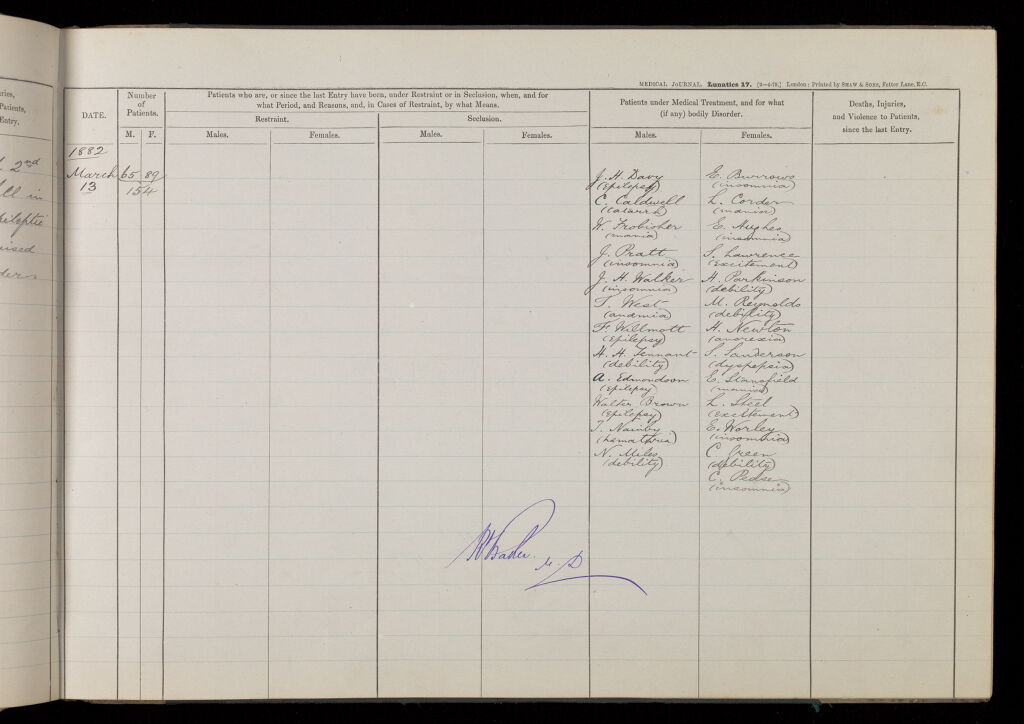 MEDICAL JOURNAL. Lunatics 17. London: Printed by SHAW & SONS, Fetter Lane, E.C.
DATE.
Number
of
Patients.
M. F.
Patients who are, or since the last Entry have been, under Restraint or in Seclusion, when, and for
what Period, and Reasons, and, in Cases of Restraint, by what Means.
Restraint.
Seclusion.
Males. Females. Males. Females.
Patients under Medical Treatment, and for what
(if any) bodily Disorder.
Males. Females.
Deaths, Injuries,
and Violence to Patients,
since the last Entry.
Patients,
Entry.
2nd
ll in
epileptic
1882
March 65 89
13 154
J. H. Davy
(Epilepsy)
C. Caldwell
(Catarrh)
W. Frobisher
(mania)
J. Pratt
(insomnia)
J. H. Walker
(insomnia)
T. West
(anæmia)
F. Willmott
(Epilepsy)
H. H. Tennant
(debility)
A. Edmondson
(Epilepsy)
Walter Brown
(Epilepsy)
T. Nainby
N. Miles
(debility)
E. Burrows
(insomnia)
L. Corder
(mania)
E. Hughes
(insomnia)
S. Lawrence
(Excitement)
H. Parkinson
(debility)
M. Reynolds
(debility)
H. Newton
(anorexia)
S. Sanderson
(dyspepsia)
E. Stansfield
(mania)
L. Steel
(excitement)
E. Worley
(insomnia)
C. Green
(debility)
C. Pedse
(insomnia)
M. D